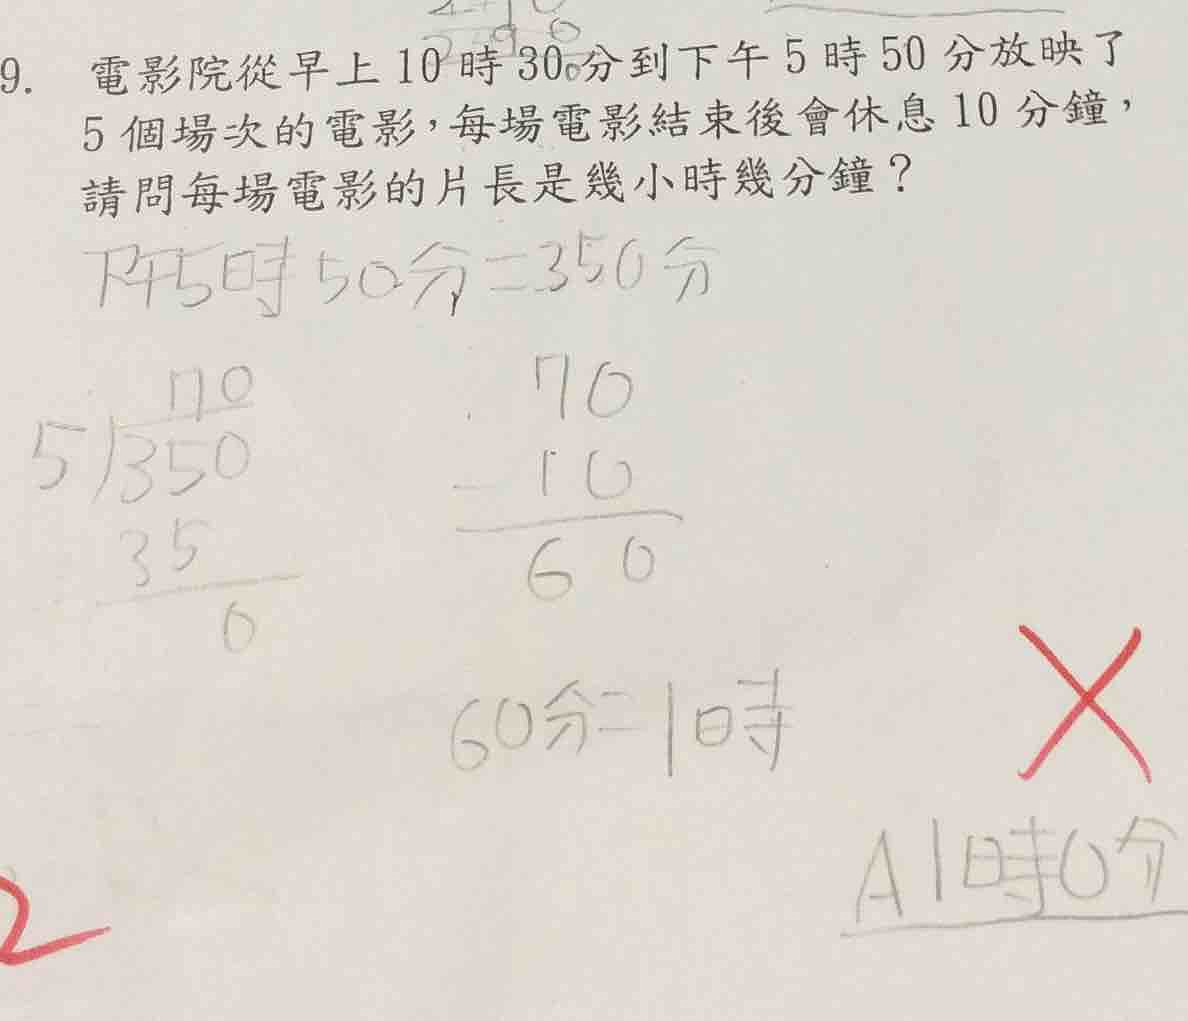 9. 電影院從早上 10 時 30 分到下午 5 時 50 分放映了
5 個場次的電影，每場電影結束後會休息 10 分鐘，
請問每場電影的片長是幾小時幾分鐘？
下午5時50分=350分
70
5)350
35
0
70
- 10
60
60分=1時
A 1時0分
2